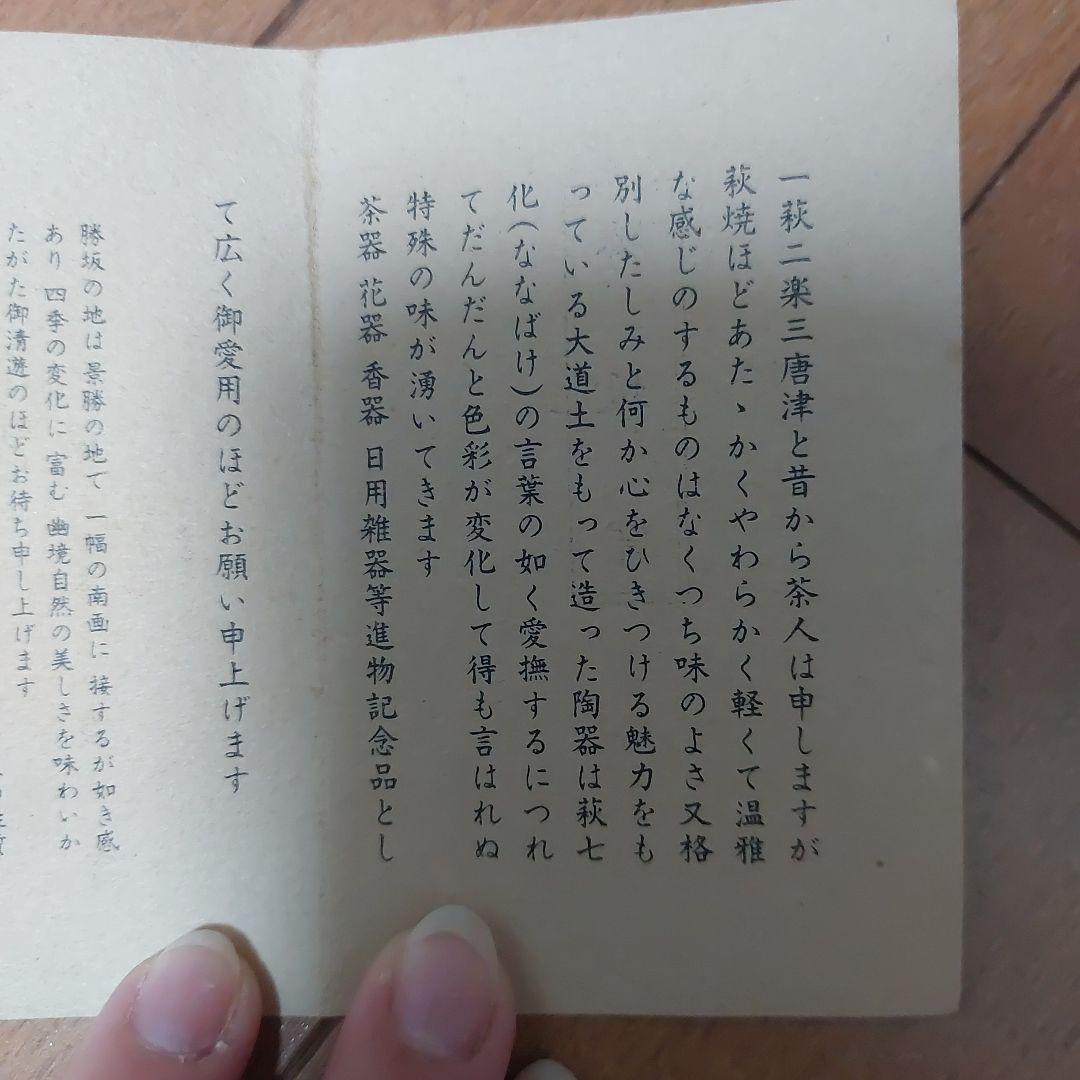 一萩二楽三唐津と昔から茶人は申しますが
萩焼ほどあたゝかくやわらかく軽くて温雅
な感じのするものはなくつち味のよさ又格
別したしみと何か心をひきつける魅力をも
っている大道土をもって造った陶器は萩七
化(ななばけ)の言葉の如く愛撫するにつれ
てだんだんと色彩が変化して得も言はれぬ
特殊の味が湧いてきます
茶器 花器 香器 日用雑器等進物記念品とし
て広く御愛用のほどお願い申上げます
勝坂の地は景勝の地で 一幅の南画に接するが如き感
あり 四季の変化に富む 幽境自然の美しさを味わいか
たがた御清遊のほどお待ち申し上げます